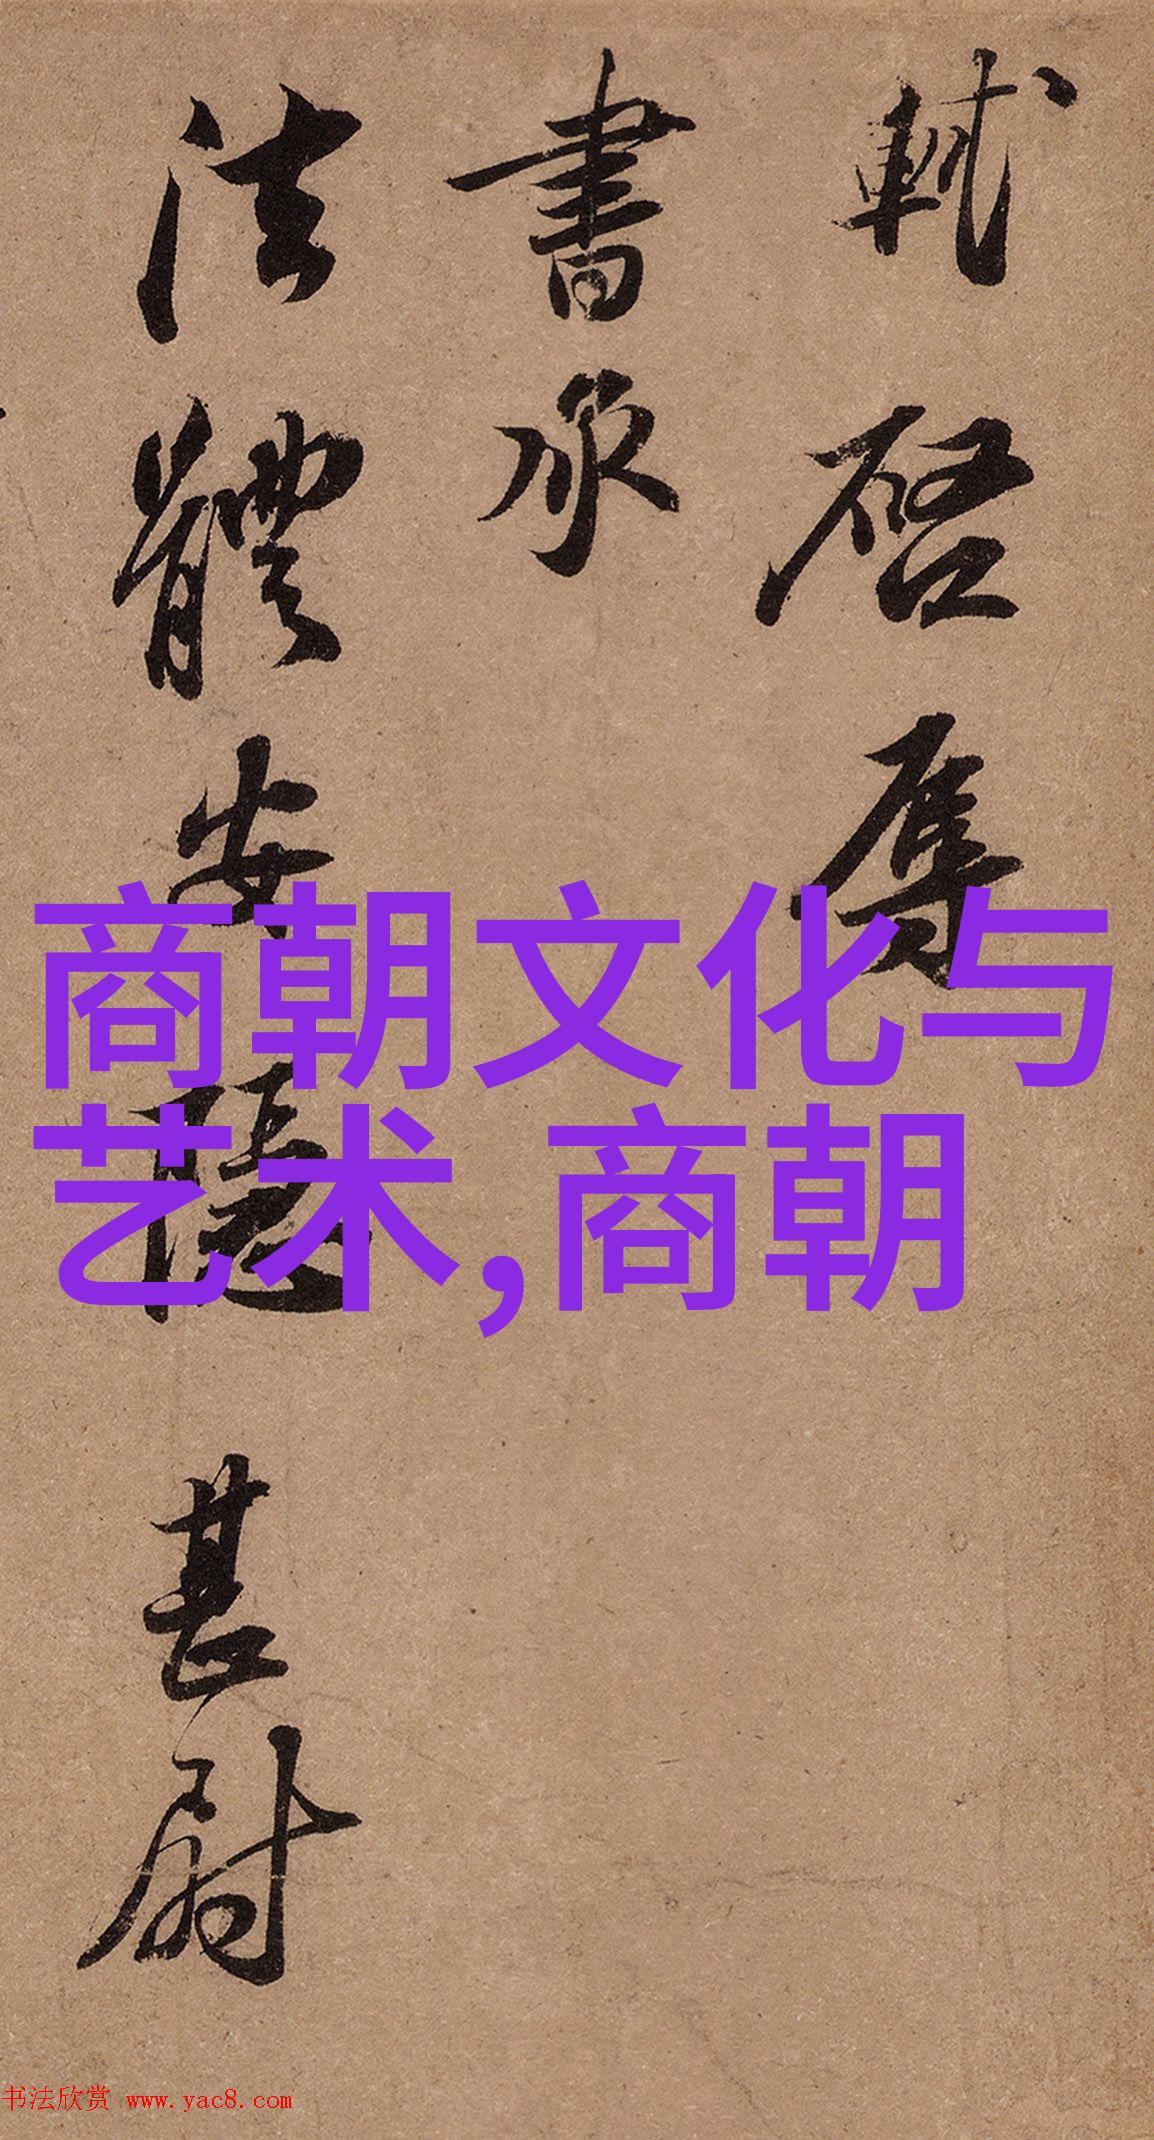 軾啓辱
書承
法體安隱甚慰
商朝文化与
艺术,商朝
书法欣赏 www.yac8.com